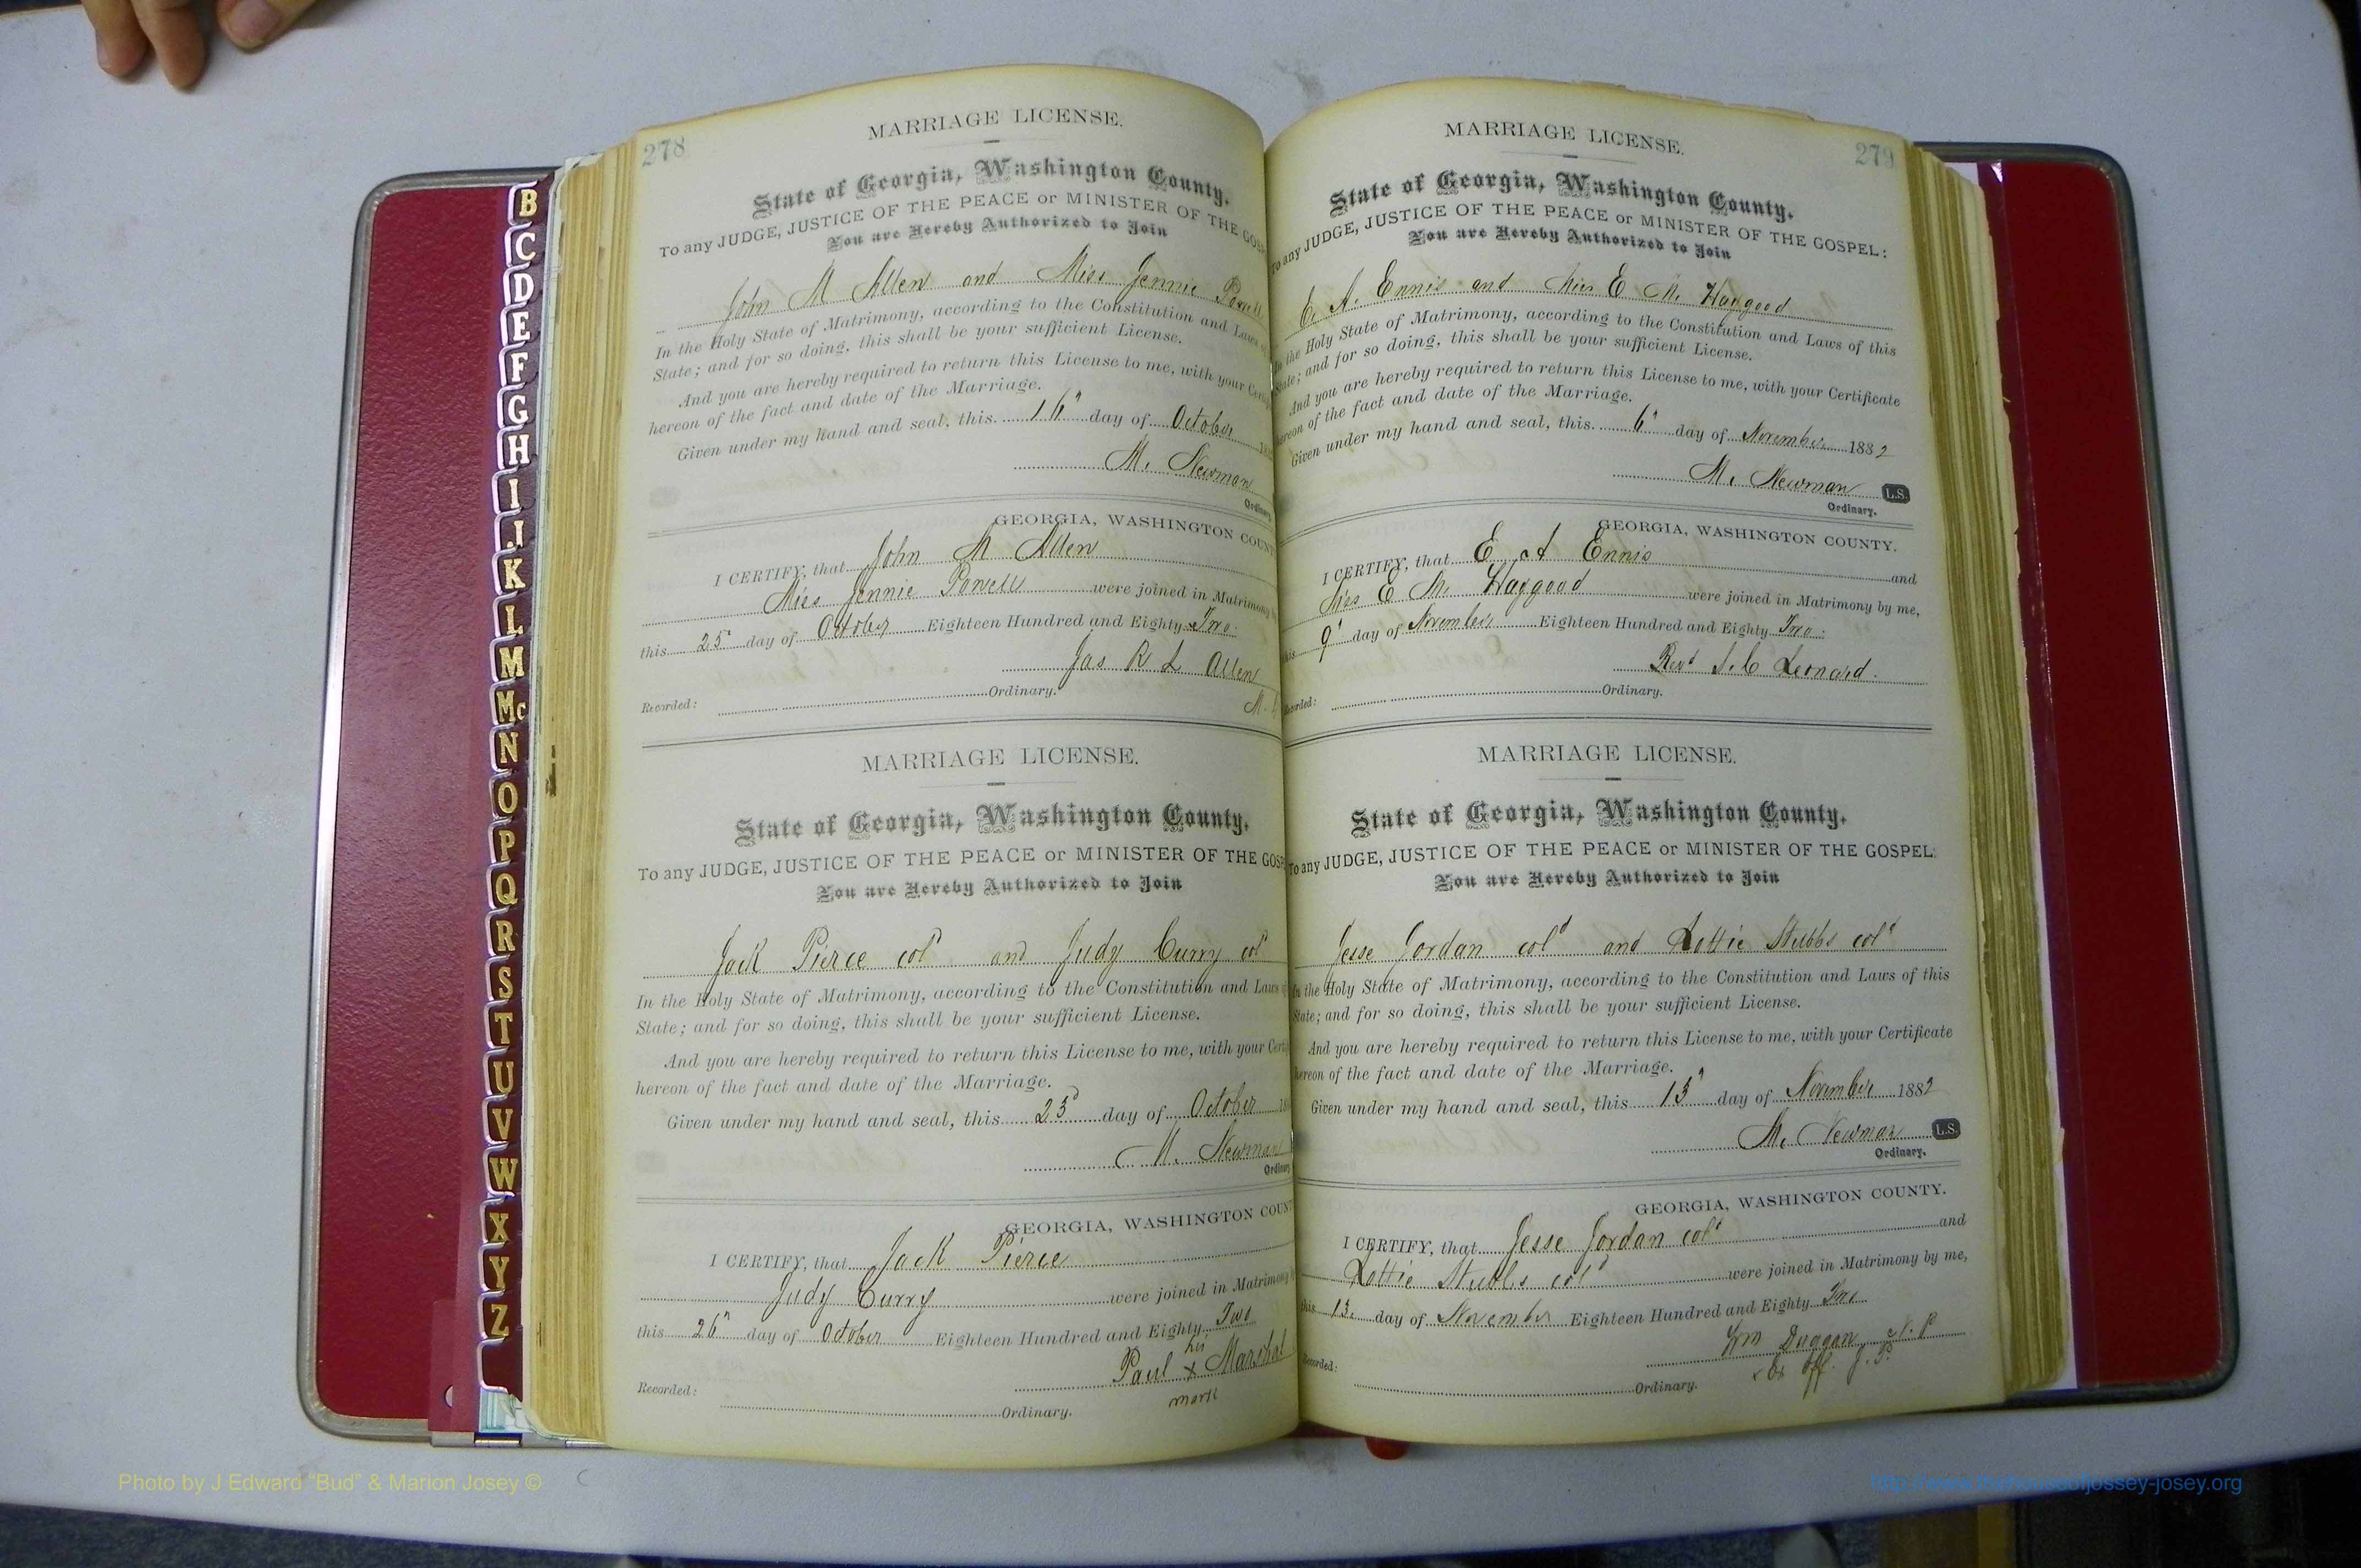 278
MARRIAGE LICENSE.
State of Georgia, Washington County.
To any JUDGE, JUSTICE OF THE PEACE or MINISTER OF THE GOSP
You are Hereby Authorized to Join
John M Allen and Miss Jennie Powell
In the Holy State of Matrimony, according to the Constitution and Laws of
State; and for so doing, this shall be your sufficient License.
And you are hereby required to return this License to me, with your Certif
hereon of the fact and date of the Marriage.
Given under my hand and seal, this 16" day of October 188
M. Newman
Ordinary
GEORGIA, WASHINGTON COUNT
I CERTIFY, that John M Allen
Miss Jennie Powell were joined in Matrimony b
this 25" day of October Eighteen Hundred and Eighty Two
Jas R L Allen
Recorded: Ordinary.
M.
MARRIAGE LICENSE.
State of Georgia, Washington County.
To any JUDGE, JUSTICE OF THE PEACE or MINISTER OF THE GOSP
You are Hereby Authorized to Join
Jack Pierce cold and Judy Curry col
In the Holy State of Matrimony, according to the Constitution and Laws of
State; and for so doing, this shall be your sufficient License.
And you are hereby required to return this License to me, with your Certi
hereon of the fact and date of the Marriage.
Given under my hand and seal, this 23d day of October 18
M. Newman
Ordinary
GEORGIA, WASHINGTON COUNT
I CERTIFY, that Jack Pierce
Judy Curry were joined in Matrimony b
this 26" day of October Eighteen Hundred and Eighty Two
his
Paul x Marshal
mark
Recorded: Ordinary.
279
MARRIAGE LICENSE.
State of Georgia, Washington County.
To any JUDGE, JUSTICE OF THE PEACE or MINISTER OF THE GOSPEL:
You are Hereby Authorized to Join
E. A. Ennis and Miss E M. Haygood
In the Holy State of Matrimony, according to the Constitution and Laws of this
State; and for so doing, this shall be your sufficient License.
And you are hereby required to return this License to me, with your Certificate
hereon of the fact and date of the Marriage.
Given under my hand and seal, this 6" day of November 1882
M. Newman L.S.
Ordinary.
GEORGIA, WASHINGTON COUNTY.
I CERTIFY, that E A Ennis and
Miss E M. Haygood were joined in Matrimony by me,
this 9" day of November Eighteen Hundred and Eighty Two:
Revd Leonard.
Recorded: Ordinary.
MARRIAGE LICENSE.
State of Georgia, Washington County.
To any JUDGE, JUSTICE OF THE PEACE or MINISTER OF THE GOSPEL:
You are Hereby Authorized to Join
Jesse Jordan cold and Lottie Stubbs cold
In the Holy State of Matrimony, according to the Constitution and Laws of this
State; and for so doing, this shall be your sufficient License.
And you are hereby required to return this License to me, with your Certificate
hereon of the fact and date of the Marriage.
Given under my hand and seal, this 13" day of November 1882
M. Newman L.S.
Ordinary.
GEORGIA, WASHINGTON COUNTY.
I CERTIFY, that Jesse Jordan cold and
Lottie Stubbs cold were joined in Matrimony by me,
this 13. day of November Eighteen Hundred and Eighty Two
Wm Duggan N. P
Ex Off. J. P.
Recorded: Ordinary.
B
C
D
E
F
G
H
I
J
K
L
M
Mc
N
O
P
Q
R
S
T
U
V
W
X
Y
Z
Photo by J Edward “Bud” & Marion Josey ©
http://www.thehouseofjossey-josey.org